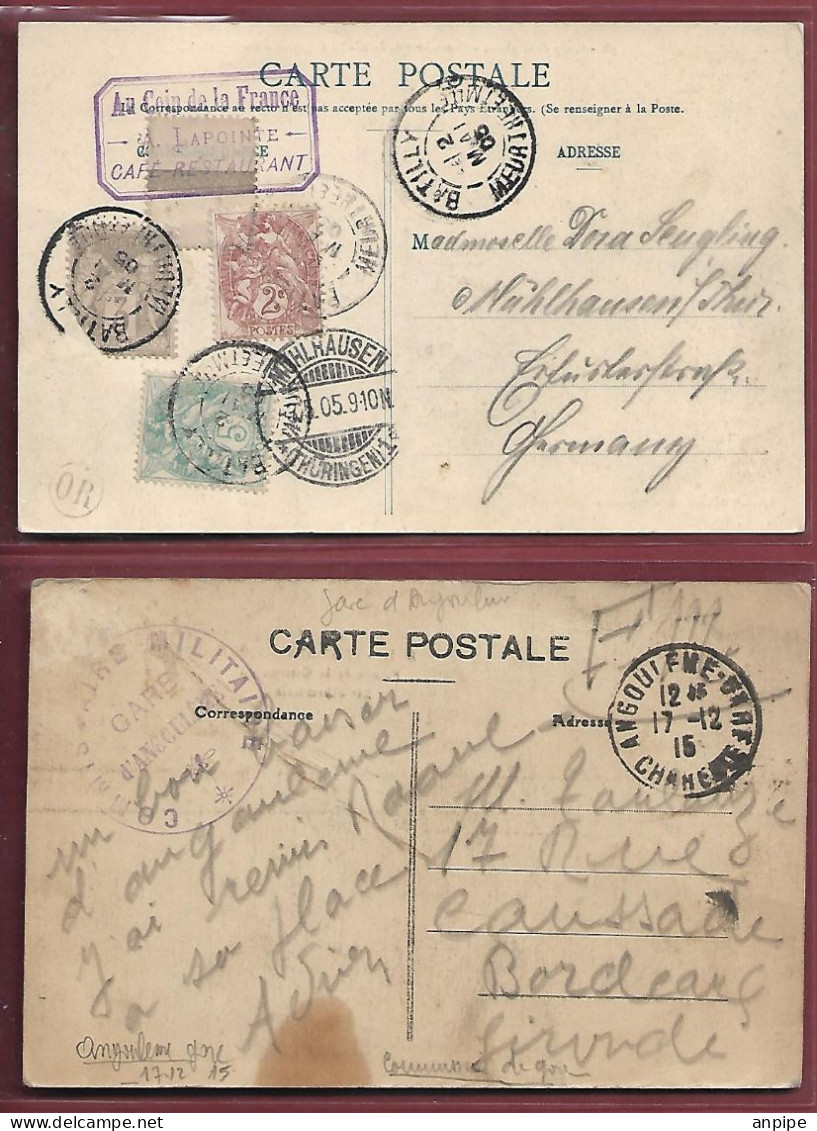 CARTE POSTALE
La Correspondance au recto n'est pas acceptée par tous les Pays Étrangers. (Se renseigner à la Poste.
Au Coin de la France
A. LAPOINTE
CAFÉ-RESTAURANT
ADRESSE
BATILLY
MEURTHE ET MLE
12
MAI
05
Madmoselle Dora
Mühlhausen i/Thür.
Erfurterstraße
Germany
2c
POSTES
5
MÜHLHAUSEN
05.9-10N
(THÜRINGEN) 1
OR
Gare d'Angoulème
CARTE POSTALE
F.M.
COMMISSAIRE MILITAIRE
GARE
d'ANGOULÊME
Correspondance
Adresse
ANGOULEME-GARE
12 45
17 -12
15
CHARENTE
un bon baiser
d'angoulême
j'ai remis
a sa place
Adrien
M.
17 Rue
Caussade
Bordeaux
Gironde
Angoulème gare
17.12 15
Commission de gare
anpipe
DELCAMPE